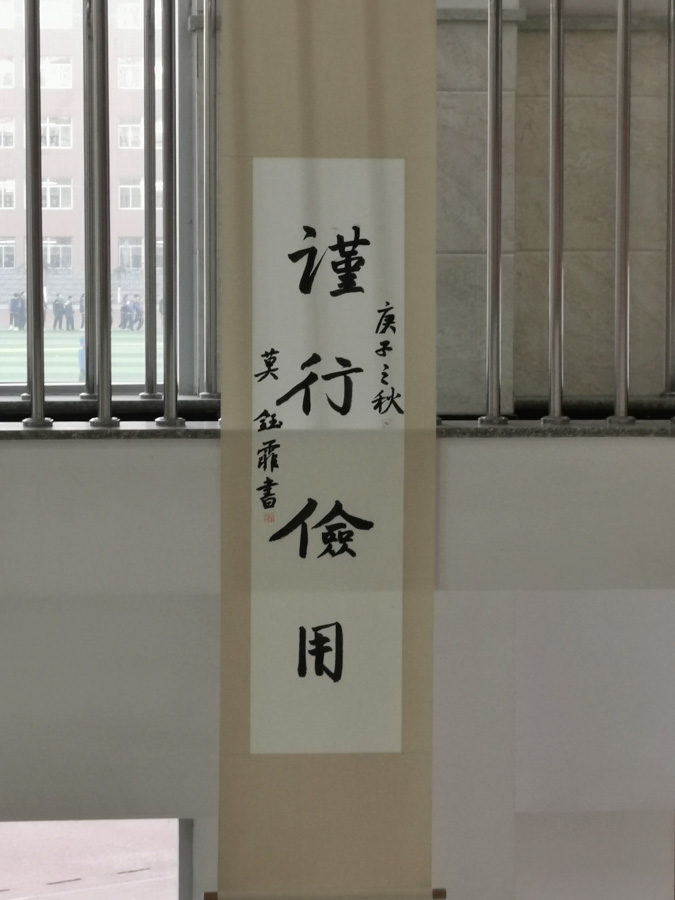 庚子之秋
謹行儉用
莫鈺霏書